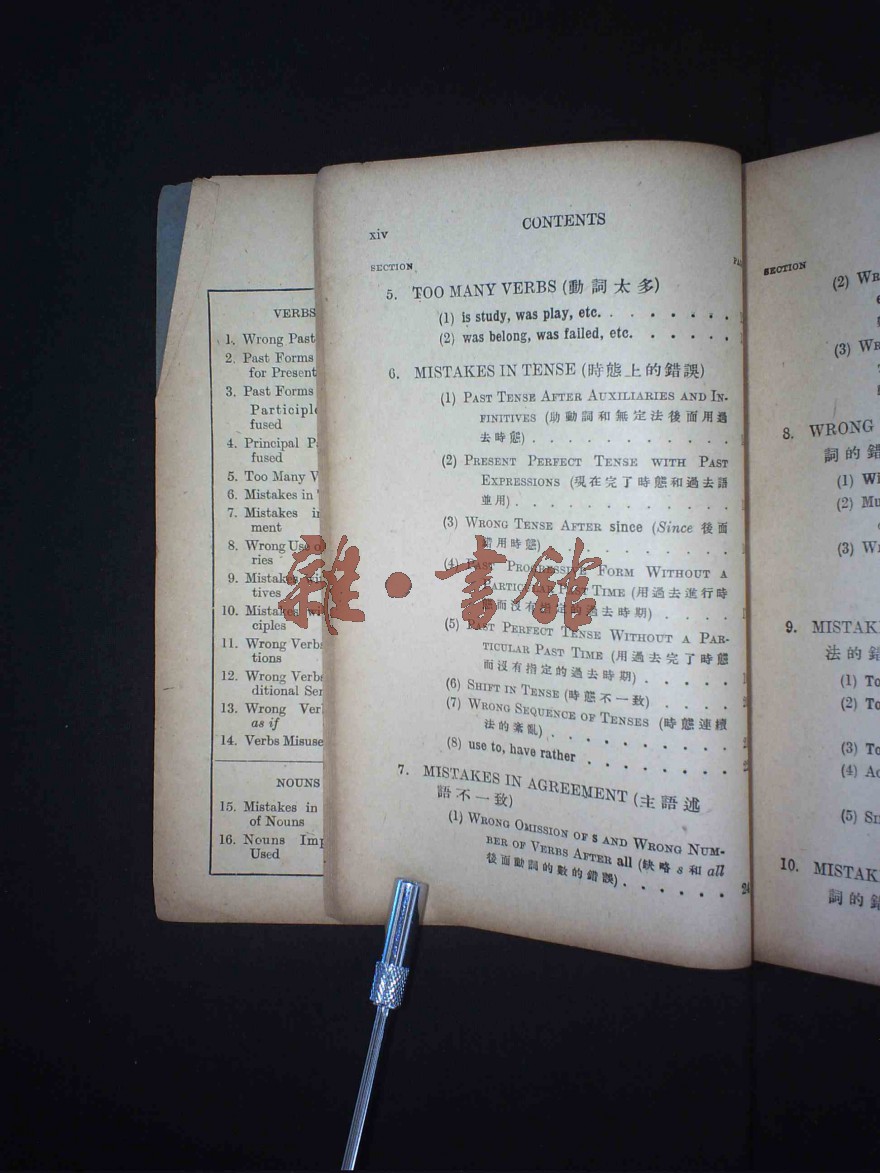 VERBS
1. Wrong Past
2. Past Forms
for Present
3. Past Forms
Participle
fused
4. Principal
fused
5. Too Many
6. Mistakes in
7. Mistakes
ment
8. Wrong Use
ries
9. Mistakes
tives
10. Mistakes
ciples
11. Wrong Verbs
tions
12. Wrong Verbs
ditional
13. Wrong
as if
14. Verbs Misuse
NOUNS
15. Mistakes in
of Nouns
16. Nouns
Used
xiv
CONTENTS
SECTION
5. TOO MANY VERBS (動詞太多)
(1) is study, was play, etc.
(2) was belong, was failed, etc.
6. MISTAKES IN TENSE (時態上的錯誤)
(1) PAST TENSE AFTER AUXILIARIES AND IN-
FINITIVES (助動詞和無定法後面用過
去時態)
(2) PRESENT PERFECT TENSE WITH PAST
EXPRESSIONS (現在完了時態和過去語
並用)
(3) WRONG TENSE AFTER since (Since 後面
錯用時態)
(4) PAST PROGRESSIVE FORM WITHOUT A
PARTICULAR PAST TIME (用過去進行時
態而沒有指定的過去時期)
(5) PAST PERFECT TENSE WITHOUT A PAR-
TICULAR PAST TIME (用過去完了時態
而沒有指定的過去時期)
(6) SHIFT IN TENSE (時態不一致)
(7) WRONG SEQUENCE OF TENSES (時態連續
法的紊亂)
(8) use to, have rather
7. MISTAKES IN AGREEMENT (主語述
語不一致)
(1) WRONG OMISSION OF s AND WRONG NUM-
BER OF VERBS AFTER all (缺略 s 和 all
後面動詞的數的錯誤) 24
雜·書館
SECTION
(2)
(3)
8. WRONG
詞的錯
(1)
(2)
(3)
9.
法的錯
(1) To
(2) To
(3) To
(4)
(5)
10.
詞的錯